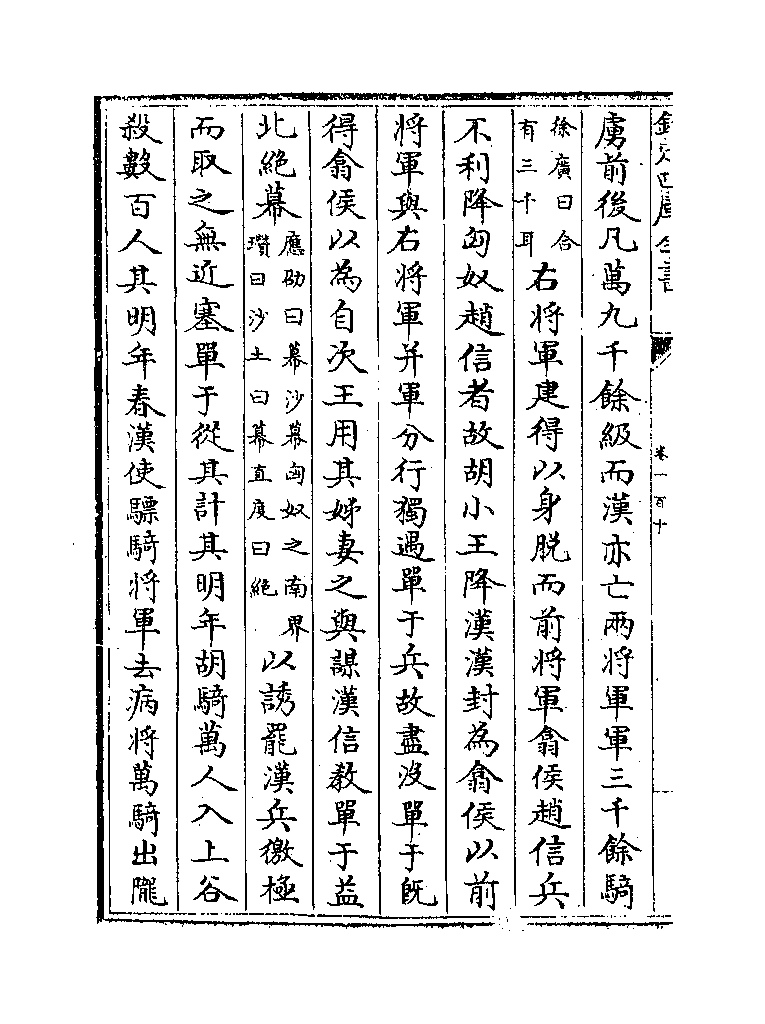 欽定四庫全書
卷一百十
虜前後凡萬九千餘級而漢亦亡兩將軍軍三千餘騎
徐廣曰合
有三千耳
右將軍建得以身脫而前將軍翕侯趙信兵
不利降匈奴趙信者故胡小王降漢漢封為翕侯以前
將軍與右將軍并軍分行獨遇單于兵故盡沒單于既
得翕侯以為自次王用其姊妻之與謀漢信教單于益
北絕幕
應劭曰幕沙幕匈奴之南界
瓚曰沙土曰幕直度曰絕
以誘罷漢兵徼極
而取之無近塞單于從其計其明年胡騎萬人入上谷
殺數百人其明年春漢使驃騎將軍去病將萬騎出隴